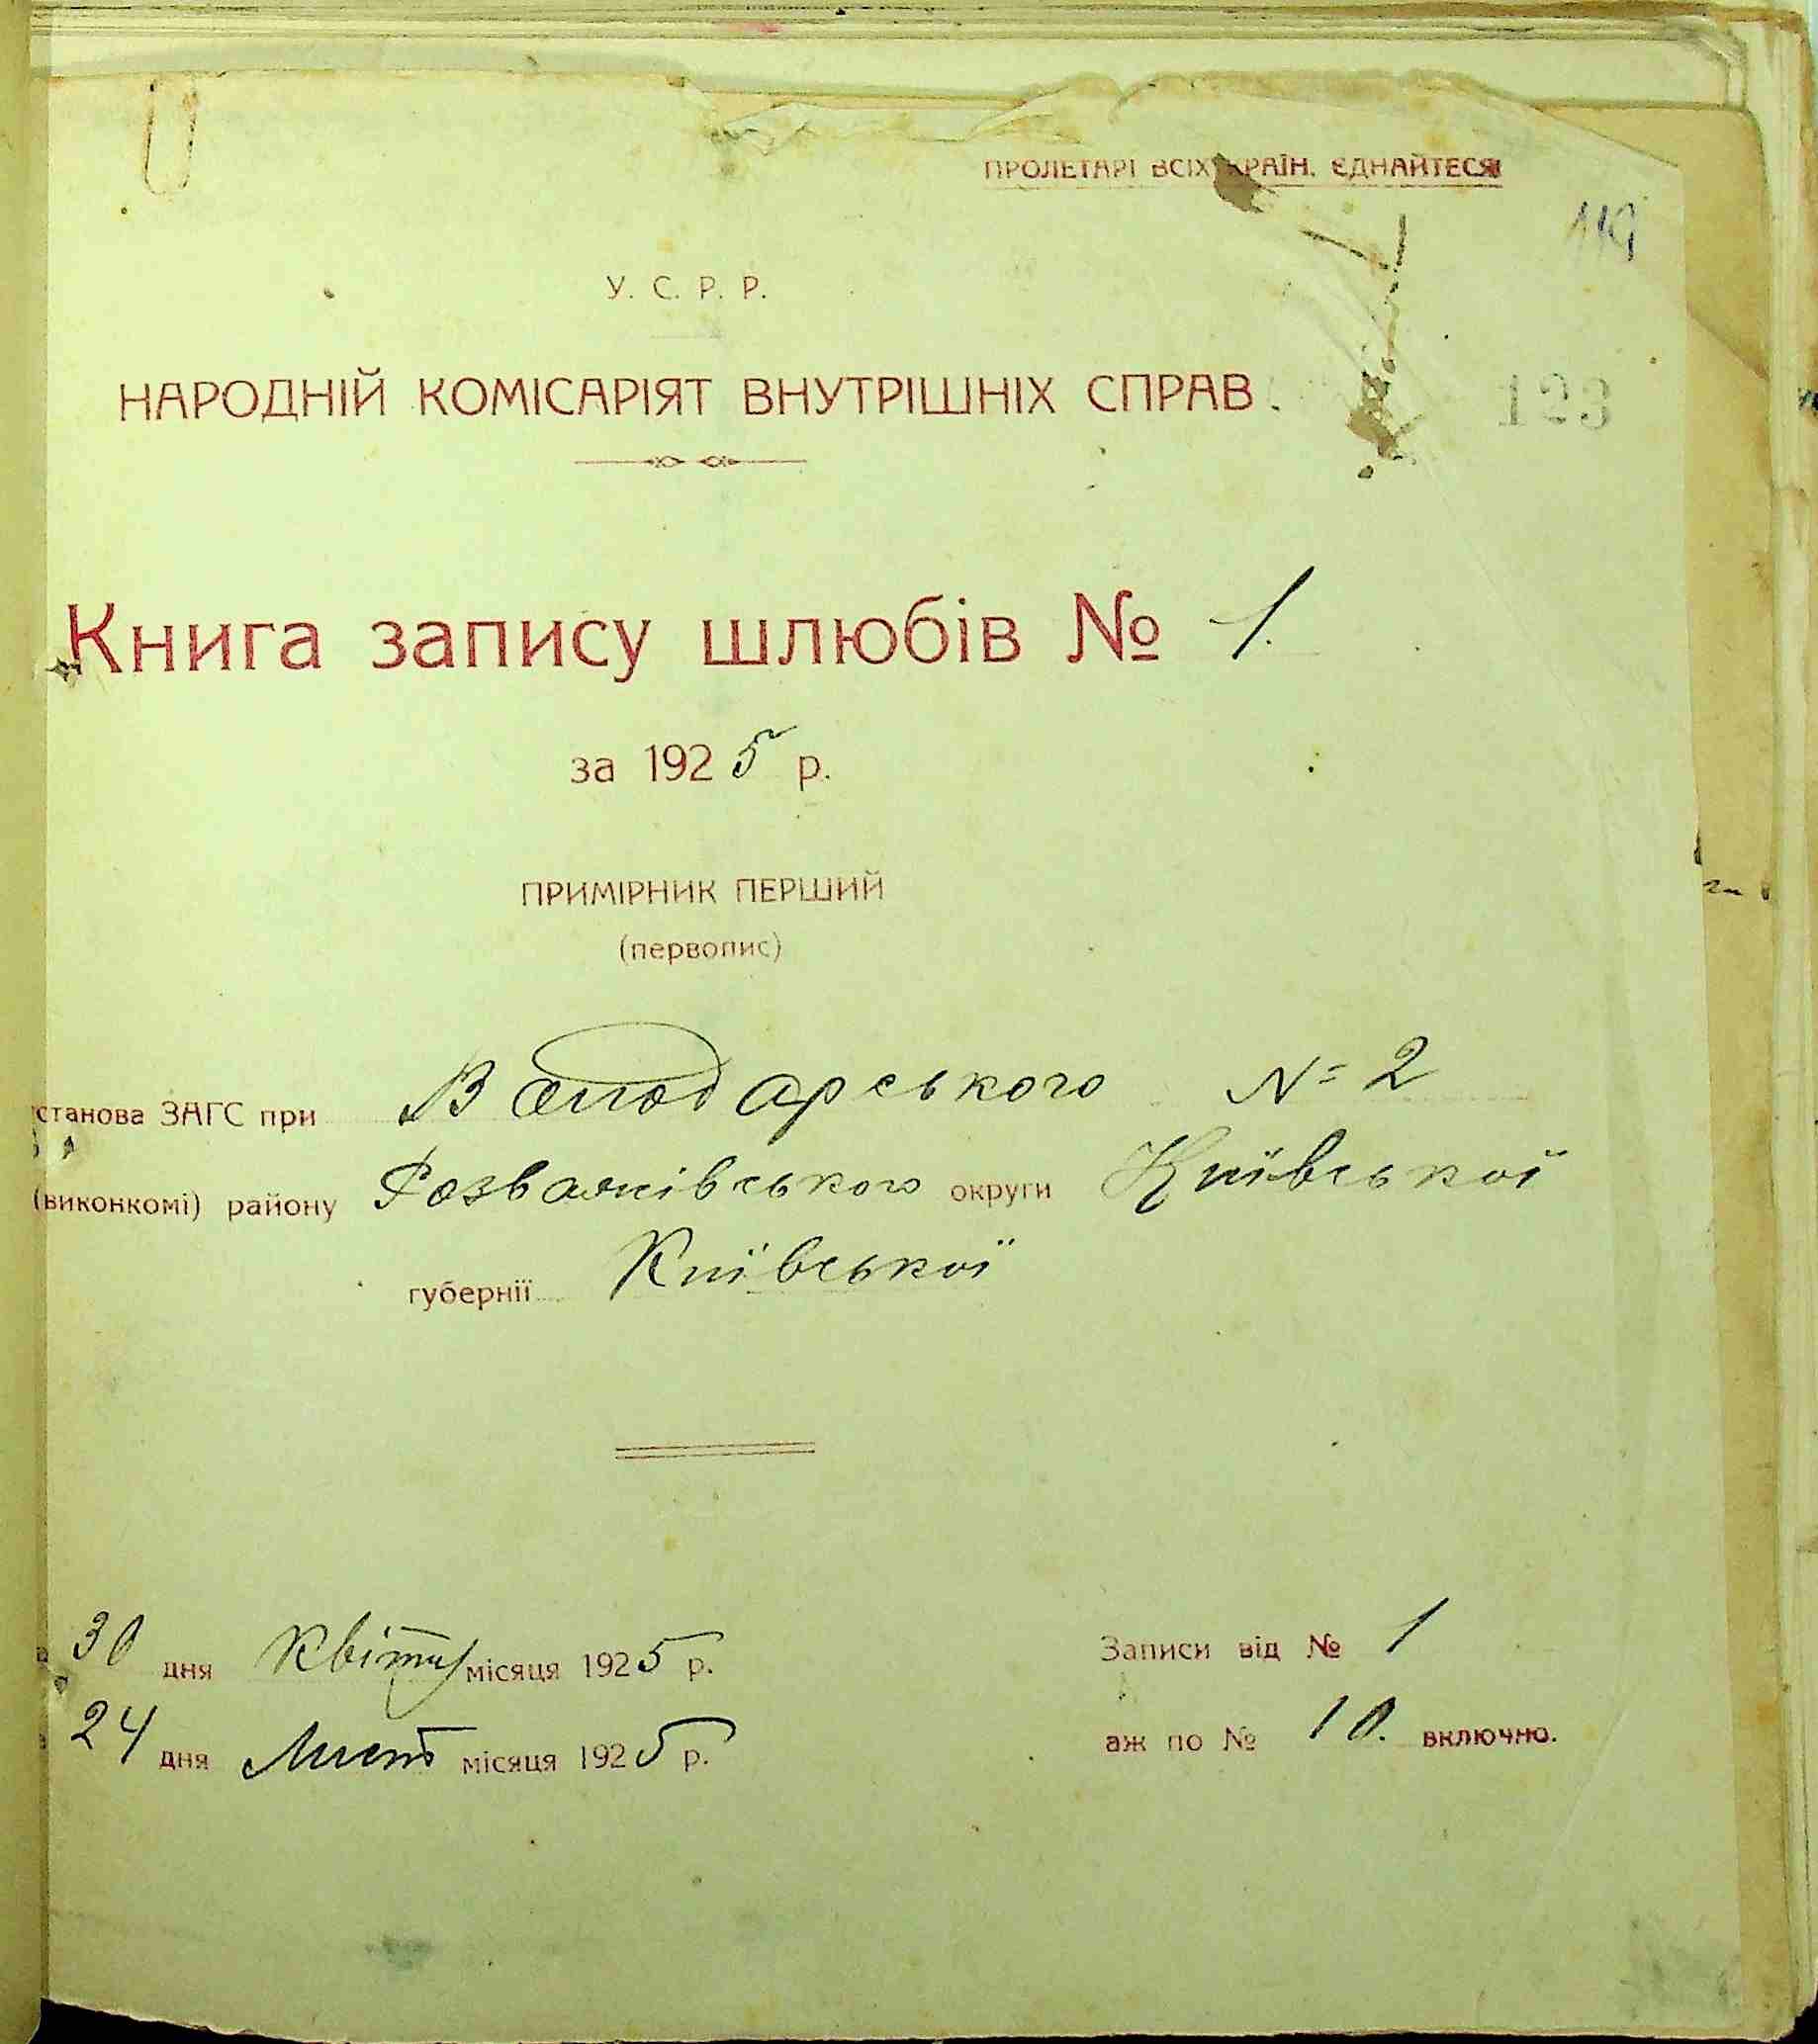 ПРОЛЕТАРІ ВСІХ КРАЇН, ЄДНАЙТЕСЯ!
119
У. С. Р. Р.
НАРОДНІЙ КОМІСАРІЯТ ВНУТРІШНІХ СПРАВ.
123
Книга запису шлюбів № 1.
за 1925 р.
ПРИМІРНИК ПЕРШИЙ
(первопис)
установа ЗАГС при № 2
(виконкомі) району Розважівського округи Київської
губернії Київської
30 дня Квітня місяця 1925 р.
Записи від № 1
24 дня Лист місяця 1925 р.
аж по № 10. включно.